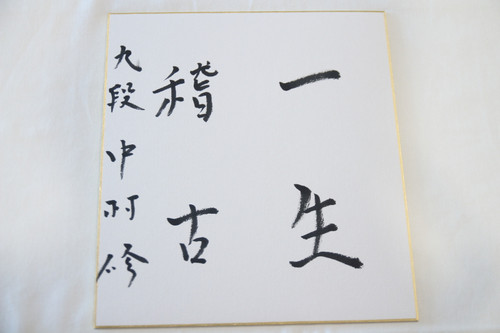 一生
稽古
九段 中村修